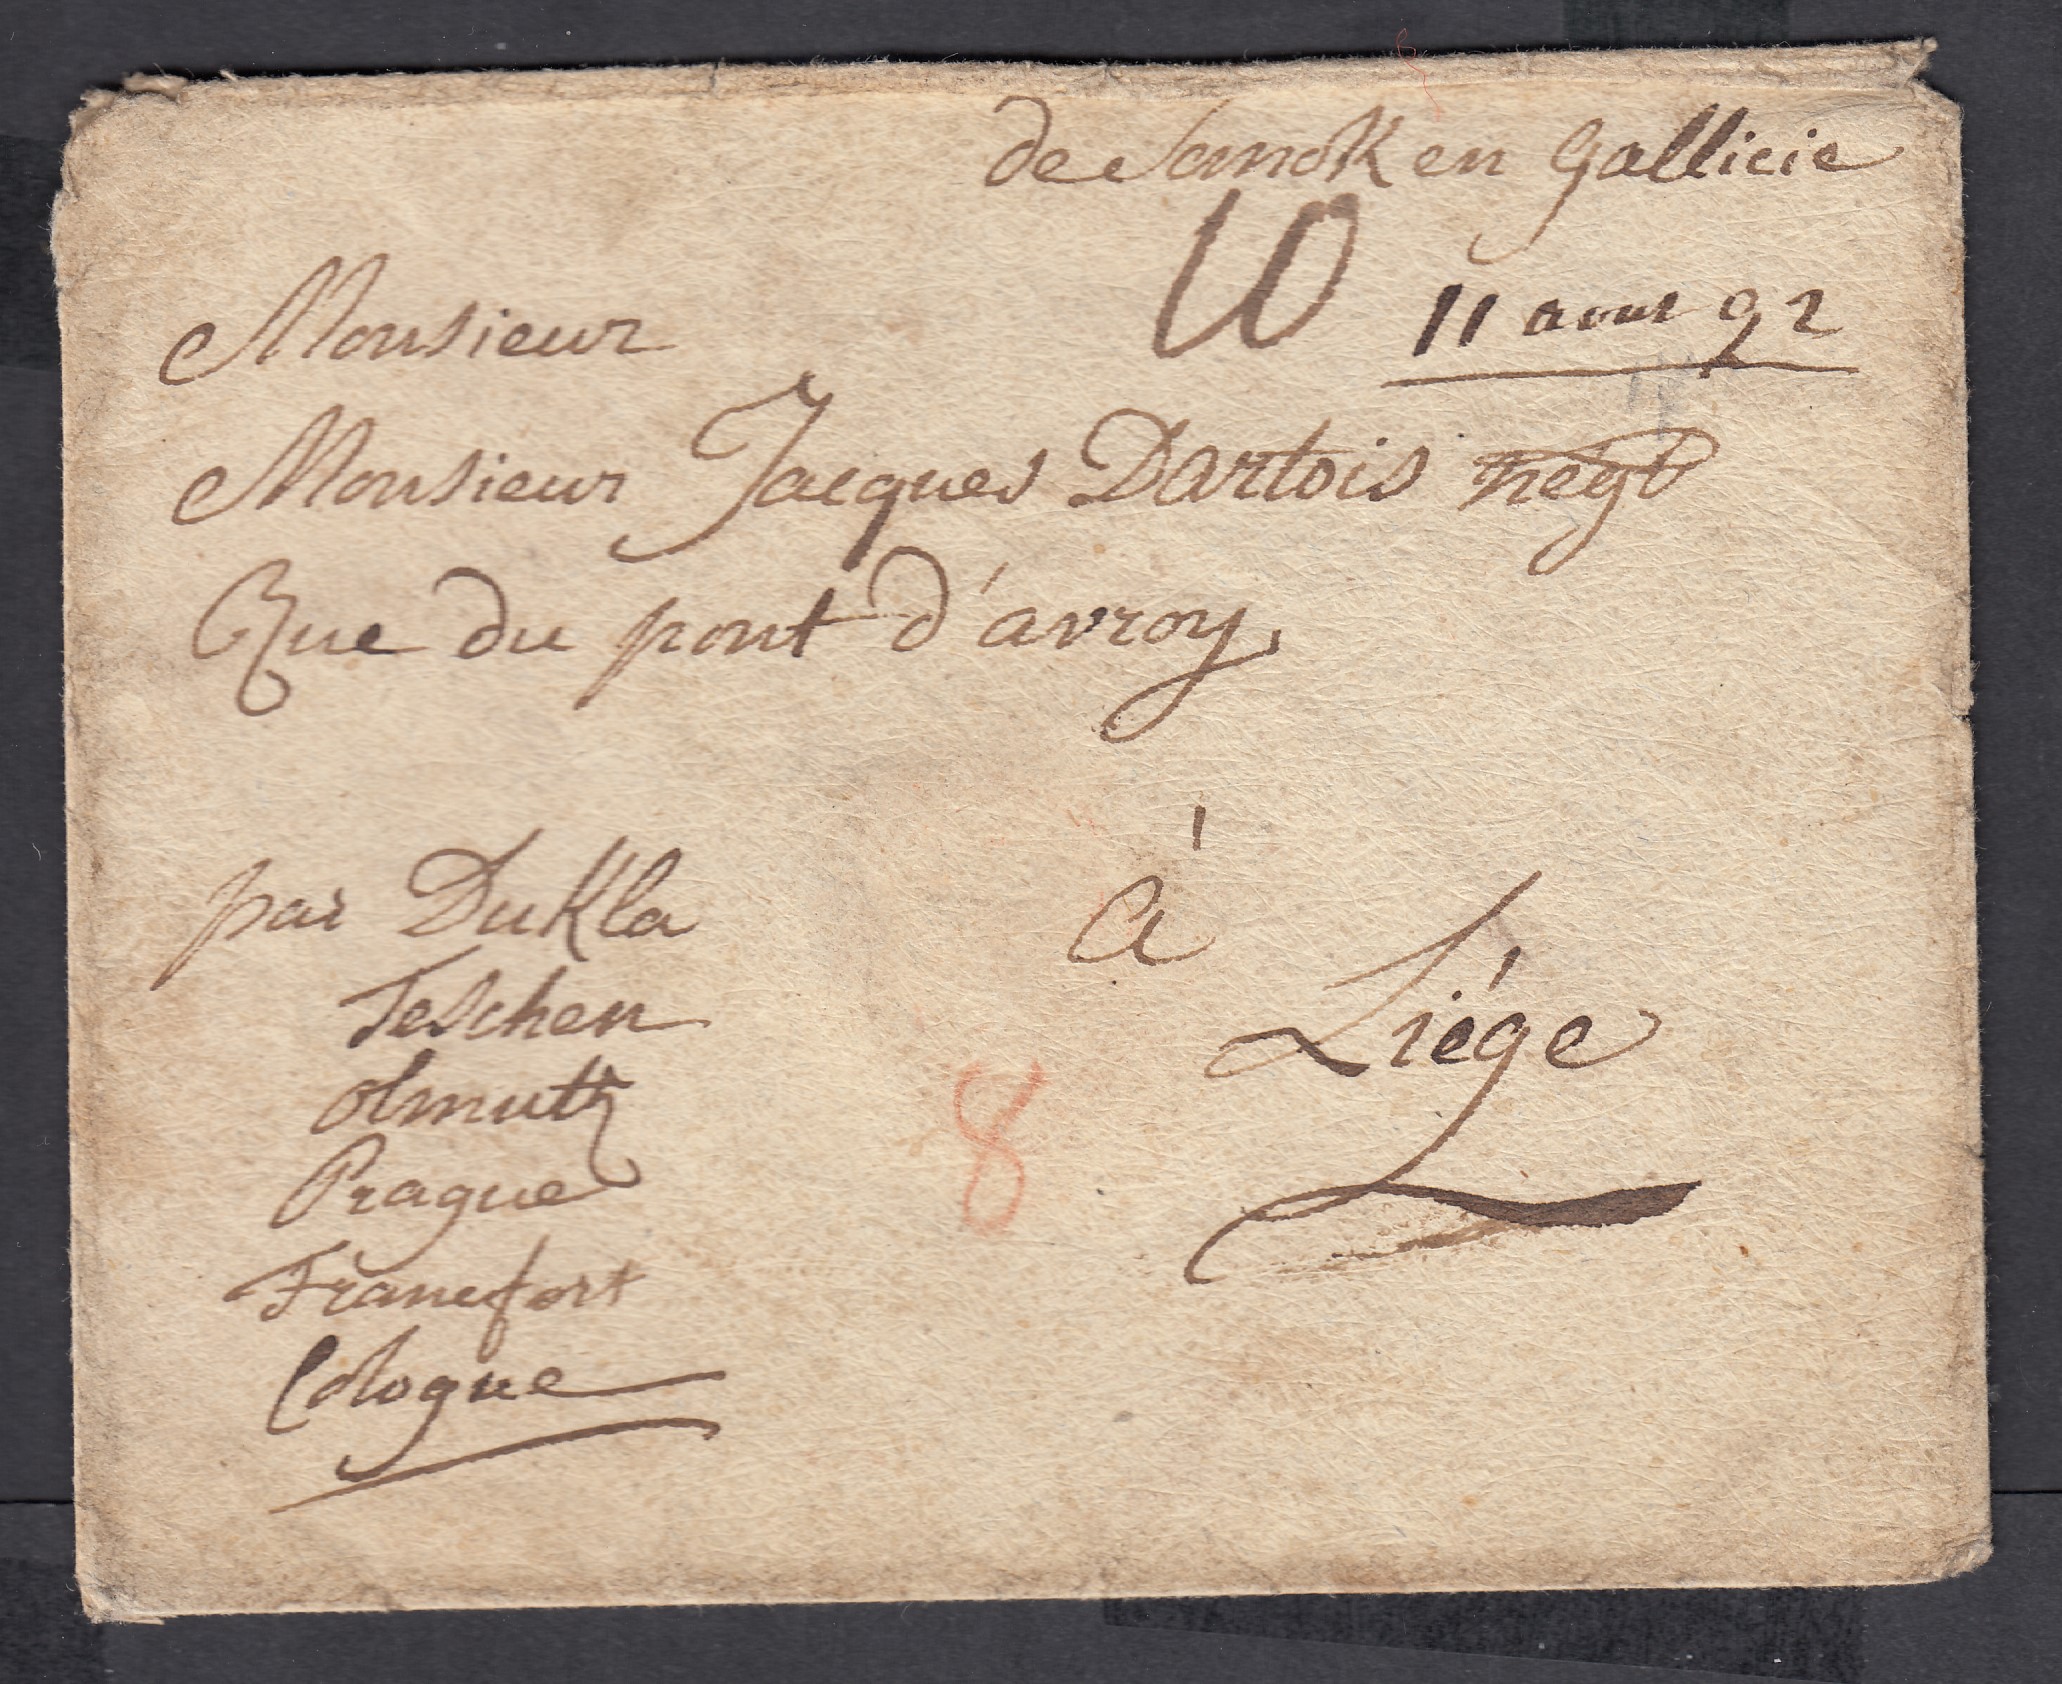 de Sanok en Gallicie
10
11 aout 92
Monsieur
Monsieur Jacques Dartois negt
Rue du pont d'avroy
à
Liége
par Dukla
Teschen
olmutz
Prague
Francfort
Cologne
8